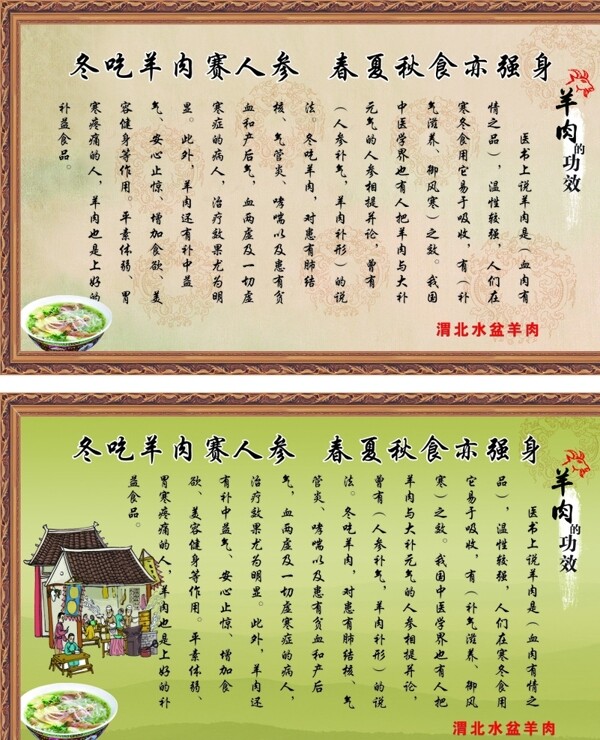 冬吃羊肉赛人参 春夏秋食亦强身
羊肉的功效
医书上说羊肉是（血肉有
情之品），温性较强，人们在
寒冬食用它易于吸收，有（补
气滋养、御风寒）之效。我国
中医学界也有人把羊肉与大补
元气的人参相提并论，曾有
（人参补气，羊肉补形）的说
法。冬吃羊肉，对患有肺结
核、气管炎、哮喘以及患有贫
血和产后气、血两虚及一切虚
寒症的病人，治疗效果尤为明
显。此外，羊肉还有补中益
气、安心止惊、增加食欲、美
容健身等作用。平素体弱、胃
寒疼痛的人，羊肉也是上好的
补益食品。
渭北水盆羊肉
冬吃羊肉赛人参 春夏秋食亦强身
羊肉的功效
医书上说羊肉是（血肉有情之
品），温性较强，人们在寒冬食用
它易于吸收，有（补气滋养、御风
寒）之效。我国中医学界也有人把
羊肉与大补元气的人参相提并论，
曾有（人参补气，羊肉补形）的说
法。冬吃羊肉，对患有肺结核、气
管炎、哮喘以及患有贫血和产后
气，血两虚及一切虚寒症的病人，
治疗效果尤为明显。此外，羊肉还
有补中益气、安心止惊、增加食
欲、美容健身等作用。平素体弱、
胃寒疼痛的人，羊肉也是上好的补
益食品。
渭北水盆羊肉